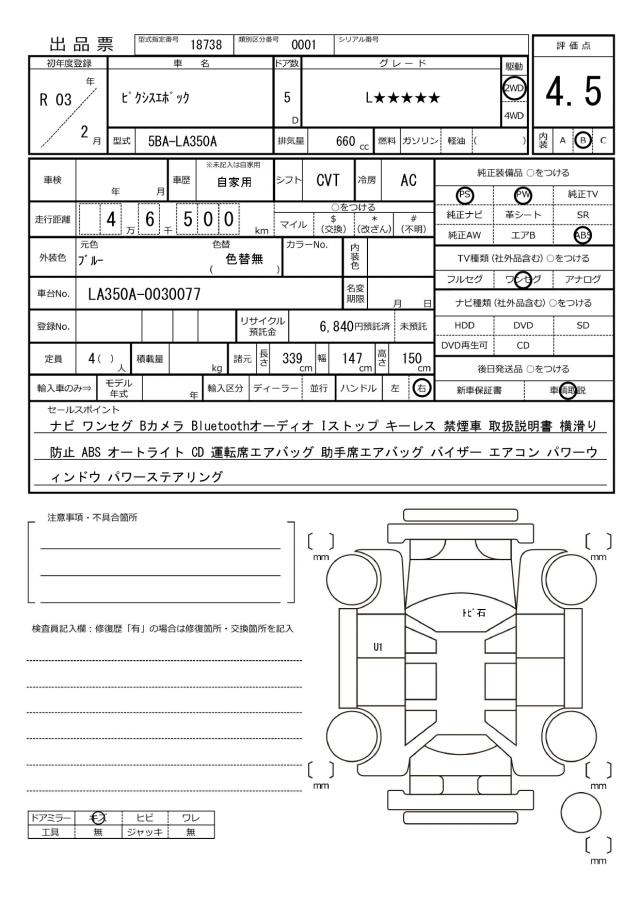 出品票 型式指定番号 18738 類別区分番号 0001 シリアル番号
評価点
4.5
内装 A B C
初年度登録 車名 ドア数 グレード 駆動
R 03 年 2 月 ﾋﾟｸｼｽｴﾎﾟｯｸ 5 D L★★★★★ 2WD 4WD
型式 5BA-LA350A 排気量 660 cc 燃料 ガソリン 軽油 ( )
車検 年 月 車歴 ※未記入は自家用 自家用 シフト CVT 冷房 AC
走行距離 4 万 6 千 5 0 0 km ○をつける マイル $ (交換) * (改ざん) # (不明)
外装色 元色 ﾌﾞﾙｰ 色替 ( 色替無 ) カラーNo. 内装色
車台No. LA350A-0030077 名変期限 月 日
登録No. リサイクル預託金 6,840円預託済 未預託
定員 4 ( ) 人 積載量 kg 諸元 長さ 339 cm 幅 147 cm 高さ 150 cm
輸入車のみ⇒ モデル年式 年 輸入区分 ディーラー 並行 ハンドル 左 右
純正装備品 ○をつける
PS PW 純正TV
純正ナビ 革シート SR
純正AW エアB ABS
TV種類 (社外品含む) ○をつける
フルセグ ワンセグ アナログ
ナビ種類 (社外品含む) ○をつける
HDD DVD SD
DVD再生可 CD
後日発送品 ○をつける
新車保証書 車輌取説
セールスポイント
ナビ ワンセグ Bカメラ Bluetoothオーディオ Iストップ キーレス 禁煙車 取扱説明書 横滑り
防止 ABS オートライト CD 運転席エアバッグ 助手席エアバッグ バイザー エアコン パワーウ
ィンドウ パワーステアリング
注意事項・不具合箇所
検査員記入欄：修復歴「有」の場合は修復箇所・交換箇所を記入
〔 〕 mm 〔 〕 mm
ﾄﾋﾞ石
U1
〔 〕 mm 〔 〕 mm
〔 〕 mm
ドアミラー キズ ヒビ ワレ
工具 無 ジャッキ 無